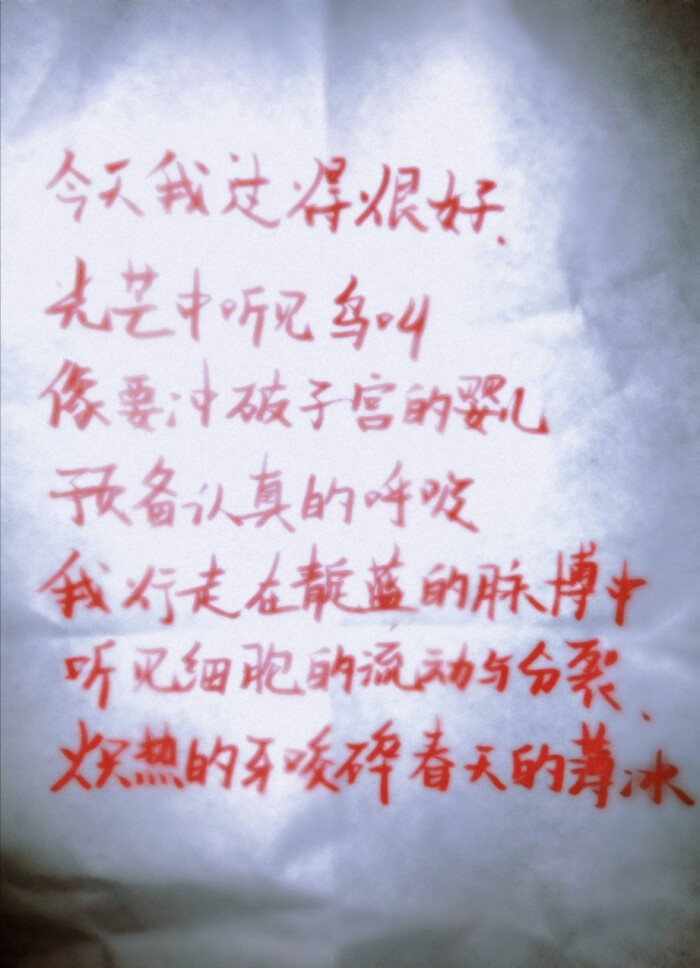 今天我过得很好、
光芒中听见鸟叫
像要冲破子宫的婴儿
预备认真的呼吸
我行走在靛蓝的脉搏中
听见细胞的流动与分裂、
炽热的牙咬碎春天的薄冰